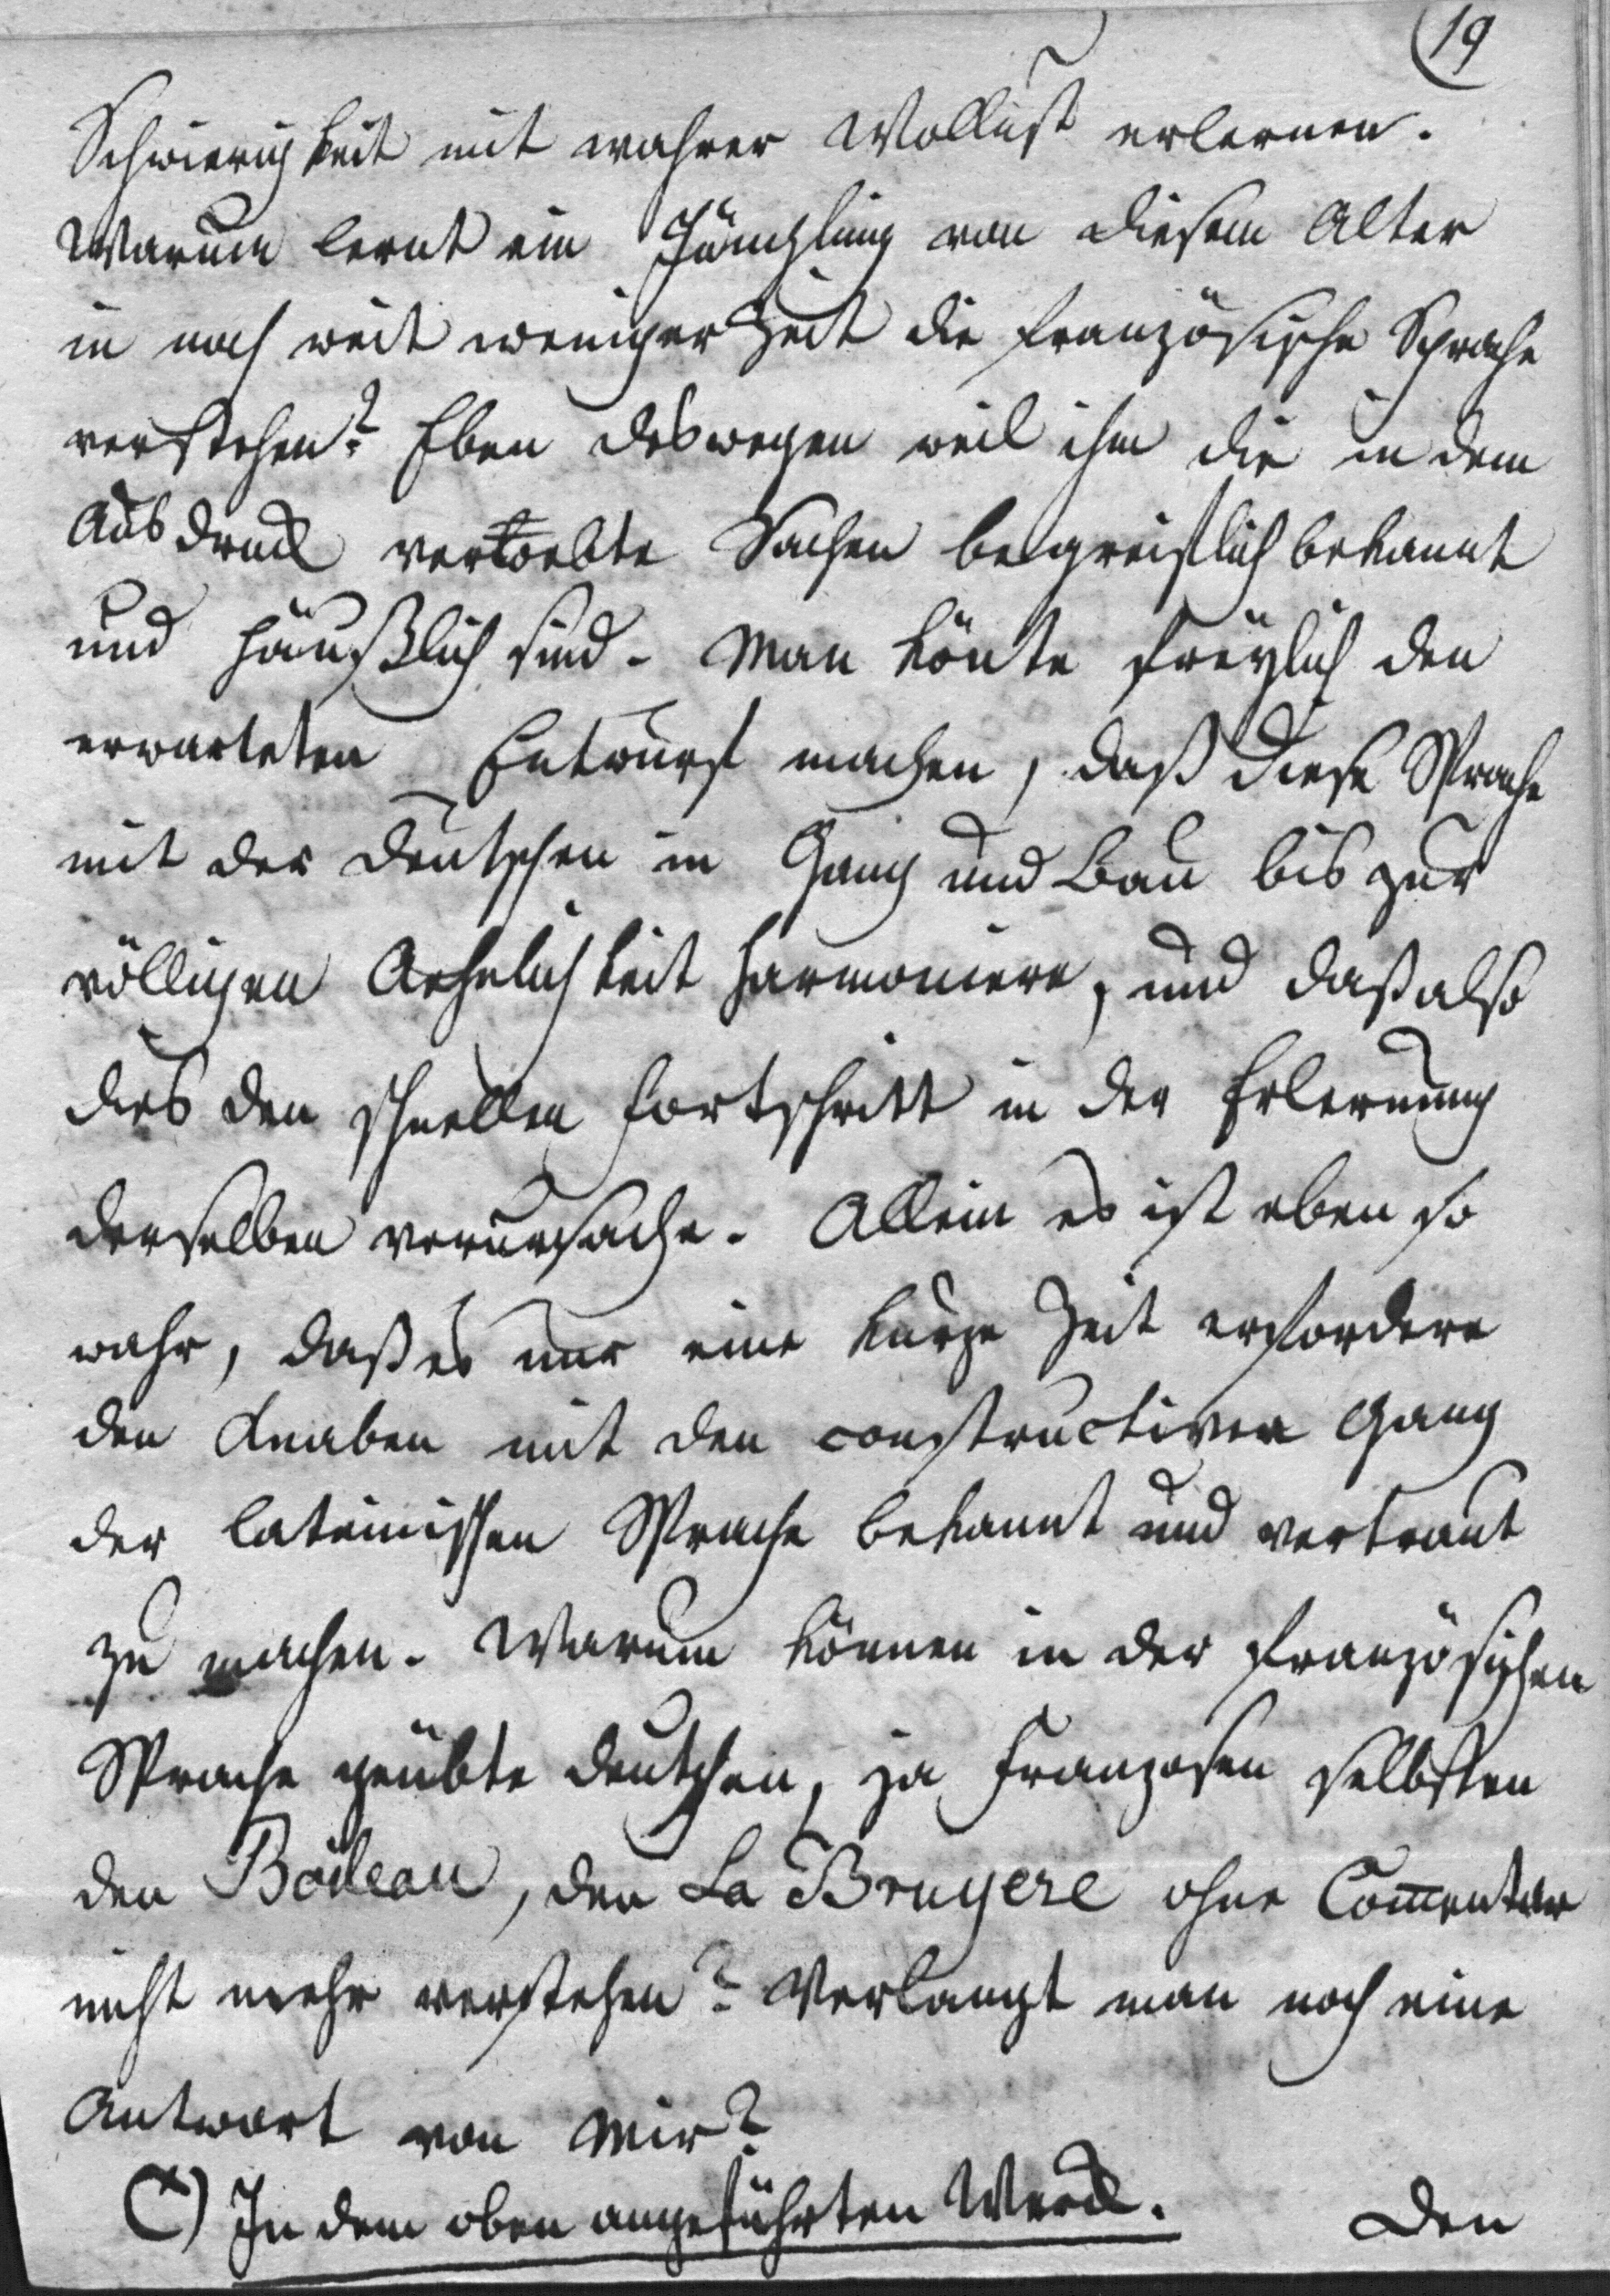 19
Schwierigkeit mit wahrer Wollust erlernen.
Warum lernt ein Jüngling von diesem Alter
in noch weit weniger Zeit die französische Sprache
verstehen? Eben deswegen weil ihm die in dem
Ausdruck verwebte Sachen begreiflich bekannt
und häußlich sind. Man könte freÿlich den
erwarteten Entwurf machen, daß diese Sprache
mit der deutschen in Gang und Bau bis zur
völligen Aehnlichkeit harmoniere, und daß also
dies den schnellen Fortschritt in der Erlernung
derselben verursache. Allein es ist eben so
wahr, daß es nur eine kurze Zeit erfordere
den Knaben mit den constructiven Gang
der lateinischen Sprache bekannt und vertraut
zu machen. Warum können in der französischen
Sprache geübte deutschen, ja Franzosen selbsten
den Boileau, den La Bruyere ohne Com̅entar
nicht mehr verstehen? Verlangt man noch eine
Antwort von mir?
(*) In dem oben angeführten Werck.
Den